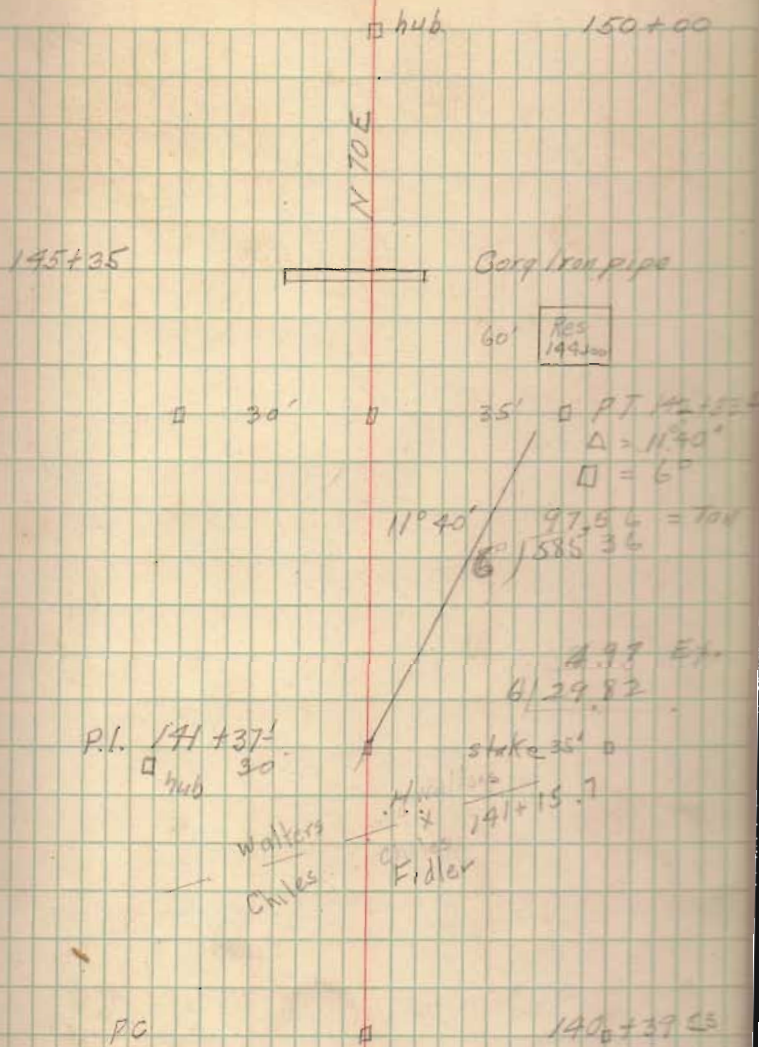 hub 150+00
N 70 E
145+35 Corg Iron pipe
60' Res
144+00
30' 35' PT 142+33
Δ = 11°40'
= 6°
11° 40' 97.56 = Tan
6 ) 585 36
4.97 Ex.
6 / 29.82
P.I. 141 +37
hub 30 stake 35'
H. 141+15.7
x
Walters
Chiles Fidler
PC 140+39